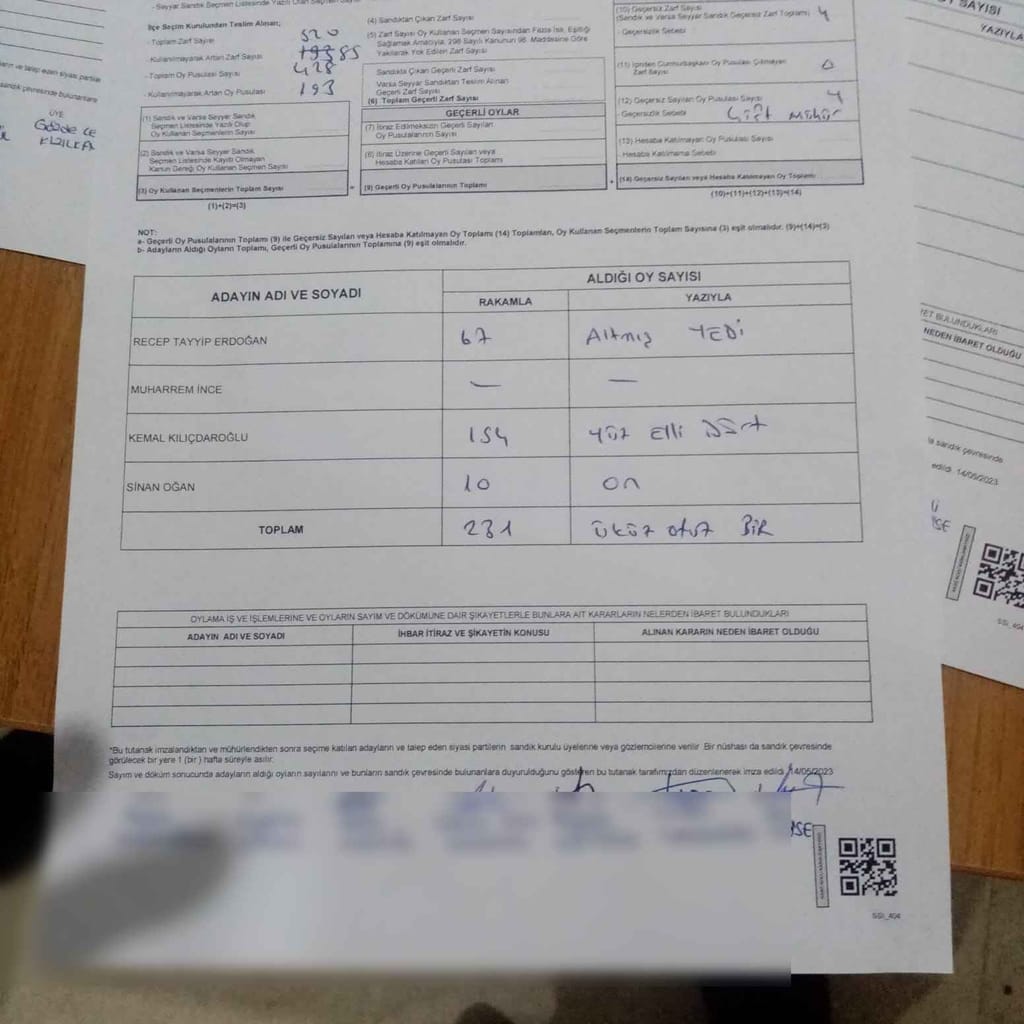 İlçe Seçim Kurulundan Teslim Alınan;
- Toplam Zarf Sayısı 520
- Kullanılmayarak Artan Zarf Sayısı
- Toplam Oy Pusulası Sayısı 428
- Kullanılmayarak Artan Oy Pusulası 193
(1) Sandık ve Varsa Seyyar Sandık
Seçmen Listesinde Yazılı Olup
Oy Kullanan Seçmenlerin Sayısı
(2) Sandık ve Varsa Seyyar Sandık
Seçmen Listesinde Kayıtlı Olmayan
Kanun Gereği Oy Kullanan Seçmen Sayısı
(3) Oy Kullanan Seçmenlerin Toplam Sayısı
(1)+(2)=(3)
(4) Sandıktan Çıkan Zarf Sayısı
(5) Zarf Sayısı Oy Kullanan Seçmen Sayısından Fazla İse, Eşitliği
Sağlamak Amacıyla, 298 Sayılı Kanunun 98. Maddesine Göre
Yakılarak Yok Edilen Zarf Sayısı
Sandıkta Çıkan Geçerli Zarf Sayısı
Varsa Seyyar Sandıktan Teslim Alınan
Geçerli Zarf Sayısı
(6) Toplam Geçerli Zarf Sayısı
GEÇERLİ OYLAR
(7) İtiraz Edilmeksizin Geçerli Sayılan
Oy Pusulalarının Sayısı
(8) İtiraz Üzerine Geçerli Sayılan veya
Hesaba Katılan Oy Pusulası Toplamı
(9) Geçerli Oy Pusulalarının Toplamı
(10) Geçersiz Zarf Sayısı
(Sandık ve Varsa Seyyar Sandık Geçersiz Zarf Toplamı) 4
- Geçersizlik Sebebi
(11) İçinden Cumhurbaşkanı Oy Pusulası Çıkmayan
Zarf Sayısı 0
(12) Geçersiz Sayılan Oy Pusulası Sayısı 4
- Geçersizlik Sebebi Çift mühür
(13) Hesaba Katılmayan Oy Pusulası Sayısı
- Hesaba Katılmama Sebebi
(14) Geçersiz Sayılan veya Hesaba Katılmayan Oy Toplamı
(10)+(11)+(12)+(13)=(14)
NOT:
a- Geçerli Oy Pusulalarının Toplamı (9) ile Geçersiz Sayılan veya Hesaba Katılmayan Oy Toplamı (14) Toplamları, Oy Kullanan Seçmenlerin Toplam Sayısına (3) eşit olmalıdır. (9)+(14)=(3)
b- Adayların Aldığı Oyların Toplamı, Geçerli Oy Pusulalarının Toplamına (9) eşit olmalıdır.
ADAYIN ADI VE SOYADI
ALDIĞI OY SAYISI
RAKAMLA YAZIYLA
RECEP TAYYİP ERDOĞAN 67 Altmış YEDİ
MUHARREM İNCE — —
KEMAL KILIÇDAROĞLU 154 Yüz Elli Dört
SİNAN OĞAN 10 on
TOPLAM 231 üküz otuz BİR
OYLAMA İŞ VE İŞLEMLERİNE VE OYLARIN SAYIM VE DÖKÜMÜNE DAİR ŞİKAYETLERLE BUNLARA AİT KARARLARIN NELERDEN İBARET BULUNDUKLARI
ADAYIN ADI VE SOYADI İHBAR İTİRAZ VE ŞİKAYETİN KONUSU ALINAN KARARIN NEDEN İBARET OLDUĞU
*Bu tutanak imzalandıktan ve mühürlendikten sonra seçime katılan adayların ve talep eden siyasi partilerin sandık kurulu üyelerine veya gözlemcilerine verilir. Bir nüshası da sandık çevresinde
görülecek bir yere 1 (bir) hafta süreyle asılır.
Sayım ve döküm sonucunda adayların aldığı oyların sayılarını ve bunların sandık çevresinde bulunanlara duyurulduğunu gösteren bu tutanak tarafımızdan düzenlenerek imza edildi. 14/05/2023
SSİ_404
ÜYE
SAYISI
YAZIYLA
RET BULUNDUKLARI
NEDEN İBARET OLDUĞU
sandık çevresinde
edildi. 14/05/2023